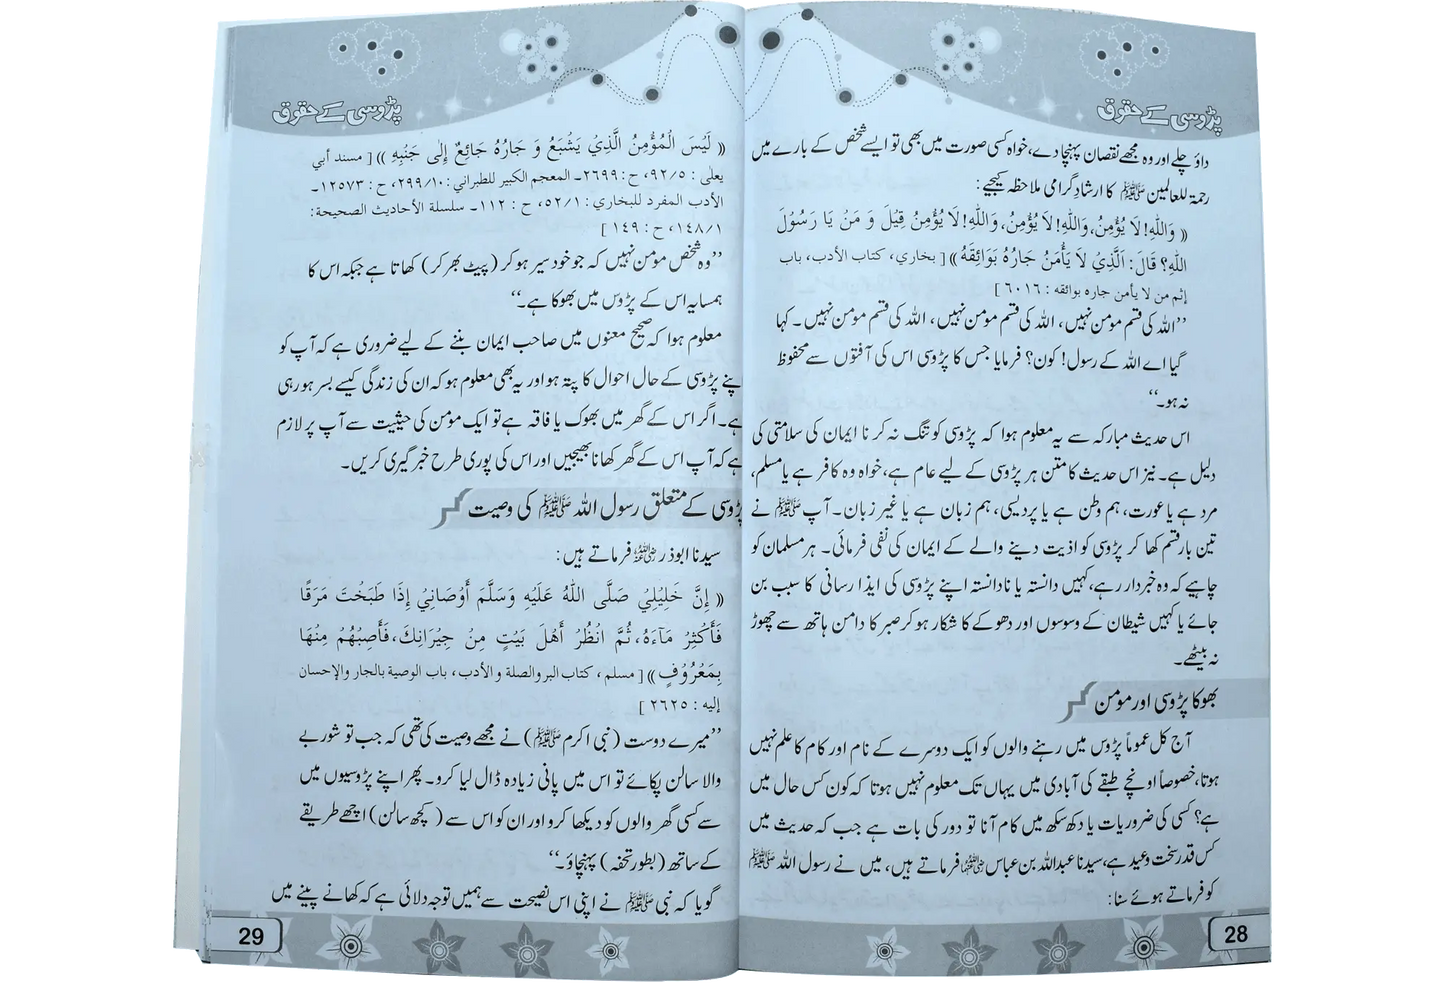 پڑوسی کے حقوق
داؤ چلے اور وہ مجھے نقصان پہنچا دے، خواہ کسی صورت میں بھی تو ایسے شخص کے بارے میں
رحمۃ للعالمین ﷺ کا ارشادِ گرامی ملاحظہ کیجیے:
(( وَاللّٰهِ! لَا يُؤْمِنُ، وَاللّٰهِ! لَا يُؤْمِنُ، وَاللّٰهِ! لَا يُؤْمِنُ قِيْلَ وَ مَنْ يَا رَسُوْلَ
اللّٰهِ؟ قَالَ: الَّذِيْ لَا يَأْمَنُ جَارُهُ بَوَائِقَهُ )) [ بخاري، كتاب الأدب، باب
إثم من لا يأمن جاره بوائقه : ٦٠١٦ ]
’’اللہ کی قسم مومن نہیں، اللہ کی قسم مومن نہیں، اللہ کی قسم مومن نہیں۔ کہا
گیا اے اللہ کے رسول! کون؟ فرمایا جس کا پڑوسی اس کی آفتوں سے محفوظ
نہ ہو۔‘‘
اس حدیث مبارکہ سے یہ معلوم ہوا کہ پڑوسی کو تنگ نہ کرنا ایمان کی سلامتی کی
دلیل ہے۔ نیز اس حدیث کا متن ہر پڑوسی کے لیے عام ہے، خواہ وہ کافر ہے یا مسلم،
مرد ہے یا عورت، ہم وطن ہے یا پردیسی، ہم زبان ہے یا غیر زبان۔ آپ ﷺ نے
تین بار قسم کھا کر پڑوسی کو اذیت دینے والے کے ایمان کی نفی فرمائی۔ ہر مسلمان کو
چاہیے کہ وہ خبردار رہے، کہیں دانستہ یا نادانستہ اپنے پڑوسی کی ایذا رسانی کا سبب بن
جائے یا کہیں شیطان کے وسوسوں اور دھوکے کا شکار ہو کر صبر کا دامن ہاتھ سے چھوڑ
نہ بیٹھے۔
بھوکا پڑوسی اور مومن
آج کل عموماً پڑوس میں رہنے والوں کو ایک دوسرے کے نام اور کام کا علم نہیں
ہوتا، خصوصاً اونچے طبقے کی آبادی میں یہاں تک معلوم نہیں ہوتا کہ کون کس حال میں
ہے؟ کسی کی ضروریات یا دکھ سکھ میں کام آنا تو دور کی بات ہے جب کہ حدیث میں
کس قدر سخت وعید ہے، سیدنا عبداللہ بن عباس رضی اللہ عنہما فرماتے ہیں، میں نے رسول اللہ ﷺ
کو فرماتے ہوئے سنا:
28
پڑوسی کے حقوق
(( لَيْسَ الْمُؤْمِنُ الَّذِيْ يَشْبَعُ وَ جَارُهُ جَائِعٌ إِلٰى جَنْبِهِ )) [ مسند أبي
يعلى : ٩٢/٥، ح : ٢٦٩٩۔ المعجم الكبير للطبراني : ٢٩٩/١٠، ح : ١٢٥٧٣۔
الأدب المفرد للبخاري : ٥٢/١، ح : ١١٢۔ سلسلة الأحاديث الصحيحة:
١٤٨/١، ح : ١٤٩ ]
’’وہ شخص مومن نہیں کہ جو خود سیر ہو کر (پیٹ بھر کر) کھاتا ہے جبکہ اس کا
ہمسایہ اس کے پڑوس میں بھوکا ہے۔‘‘
معلوم ہوا کہ صحیح معنوں میں صاحب ایمان بننے کے لیے ضروری ہے کہ آپ کو
اپنے پڑوسی کے حال احوال کا پتہ ہو اور یہ بھی معلوم ہو کہ ان کی زندگی کیسے بسر ہو رہی
ہے۔ اگر اس کے گھر میں بھوک یا فاقہ ہے تو ایک مومن کی حیثیت سے آپ پر لازم
ہے کہ آپ اس کے گھر کھانا بھیجیں اور اس کی پوری طرح خبر گیری کریں۔
پڑوسی کے متعلق رسول اللہ ﷺ کی وصیت
سیدنا ابوذر رضی اللہ عنہ فرماتے ہیں:
(( إِنَّ خَلِيْلِيْ صَلَّى اللّٰهُ عَلَيْهِ وَسَلَّمَ أَوْصَانِيْ إِذَا طَبَخْتَ مَرَقًا
فَأَكْثِرْ مَاءَهُ، ثُمَّ انْظُرْ أَهْلَ بَيْتٍ مِنْ جِيْرَانِكَ، فَأَصِبْهُمْ مِنْهَا
بِمَعْرُوْفٍ )) [ مسلم، كتاب البر والصلة و الأدب، باب الوصية بالجار والإحسان
إليه : ٢٦٢٥ ]
’’میرے دوست (نبی اکرم ﷺ) نے مجھے وصیت کی تھی کہ جب تو شوربے
والا سالن پکائے تو اس میں پانی زیادہ ڈال لیا کرو۔ پھر اپنے پڑوسیوں میں
سے کسی گھر والوں کو دیکھا کرو اور ان کو اس سے (کچھ سالن) اچھے طریقے
کے ساتھ (بطور تحفہ) پہنچاؤ۔‘‘
گویا کہ نبی ﷺ نے اپنی اس نصیحت سے ہمیں توجہ دلائی ہے کہ کھانے پینے میں
29